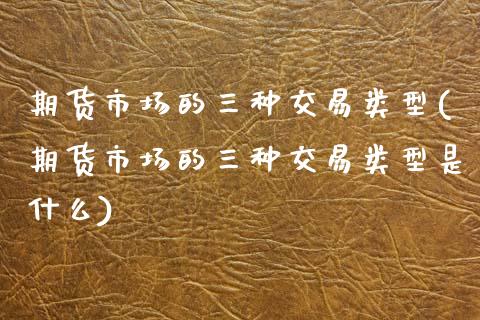 期货市场的三种交易类型(
期货市场的三种交易类型是
什么)